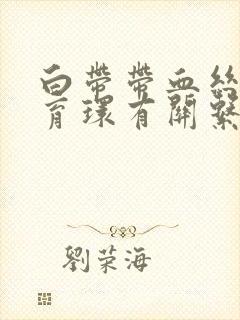 白帶帶血絲
育環有關繫
劉荣海